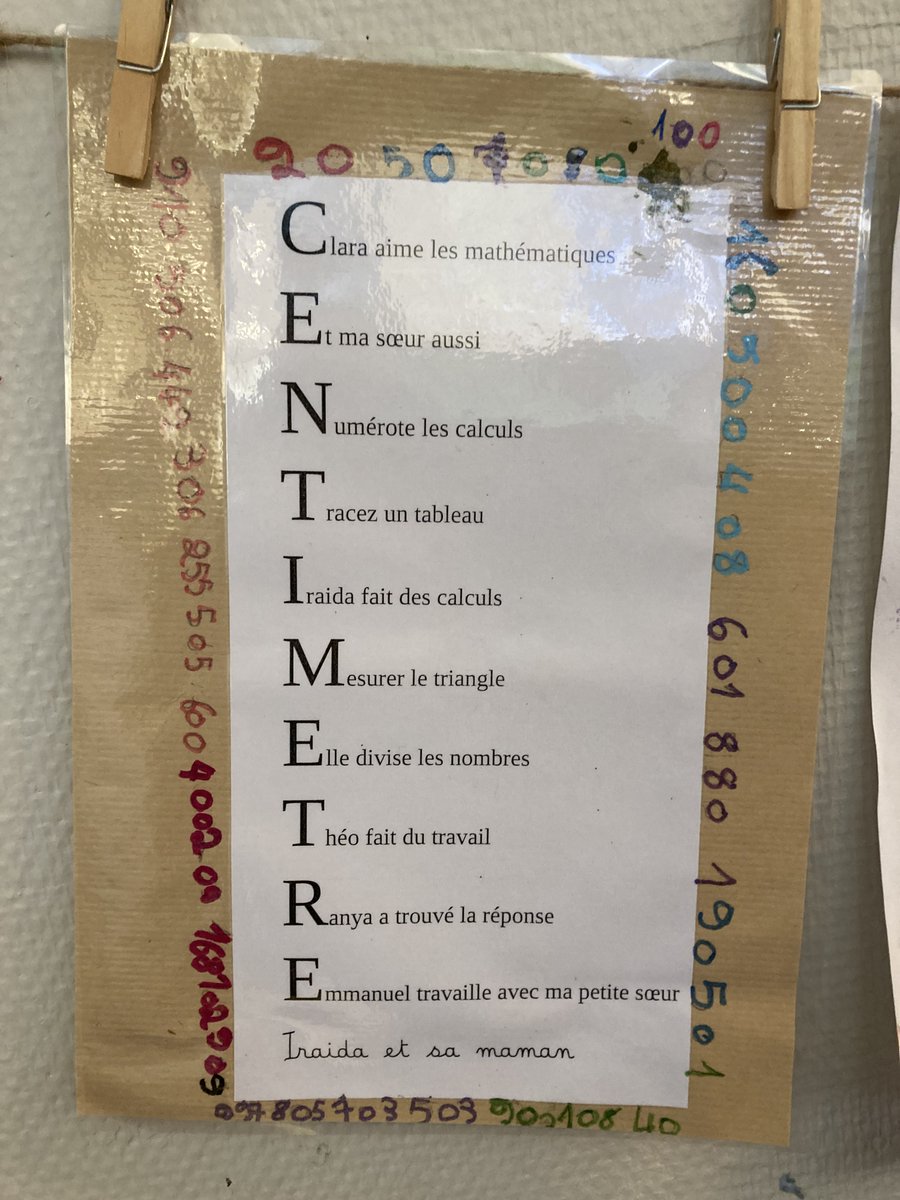 20 50 70 80 100
Clara aime les mathématiques
Et ma sœur aussi
Numérote les calculs
Tracez un tableau
Iraida fait des calculs
Mesurer le triangle
Elle divise les nombres
Théo fait du travail
Ranya a trouvé la réponse
Emmanuel travaille avec ma petite sœur
Iraida et sa maman
805 703 503 900 108 40
160 500 408 601 880 190 501
910 506 440 306 255 505 604002